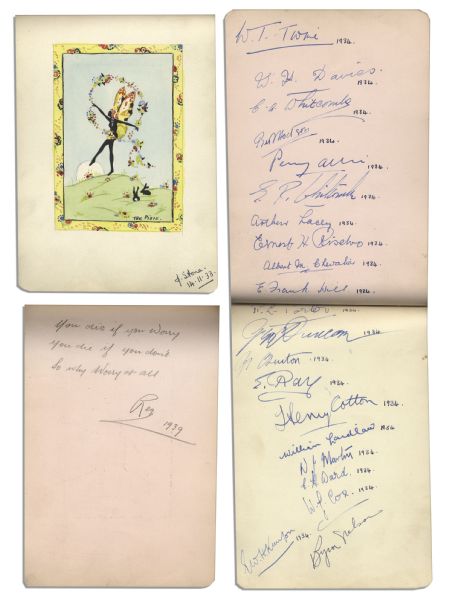 THE PIXIE.
J Stone.
14-11-33.
You die if you worry
You die if you don't
So why worry at all
Reg
1939
W. T. Twine 1934.
W. H. Davies. 1934.
C. A. Whitcombe 1934.
1934.
Percy Alliss 1934.
E. R. Whitcombe 1934.
Arthur Lacey 1934.
Ernest H. Riseboro 1934.
Albert Chevalier 1934.
E Frank Hill 1934.
Duncan 1934.
Burton 1934.
E. Ray 1934.
Henry Cotton 1934.
William Laidlaw 1934
N J Martin 1934.
C. H. Ward. 1934.
W J Cox. 1934.
1934.
Byron Nelson